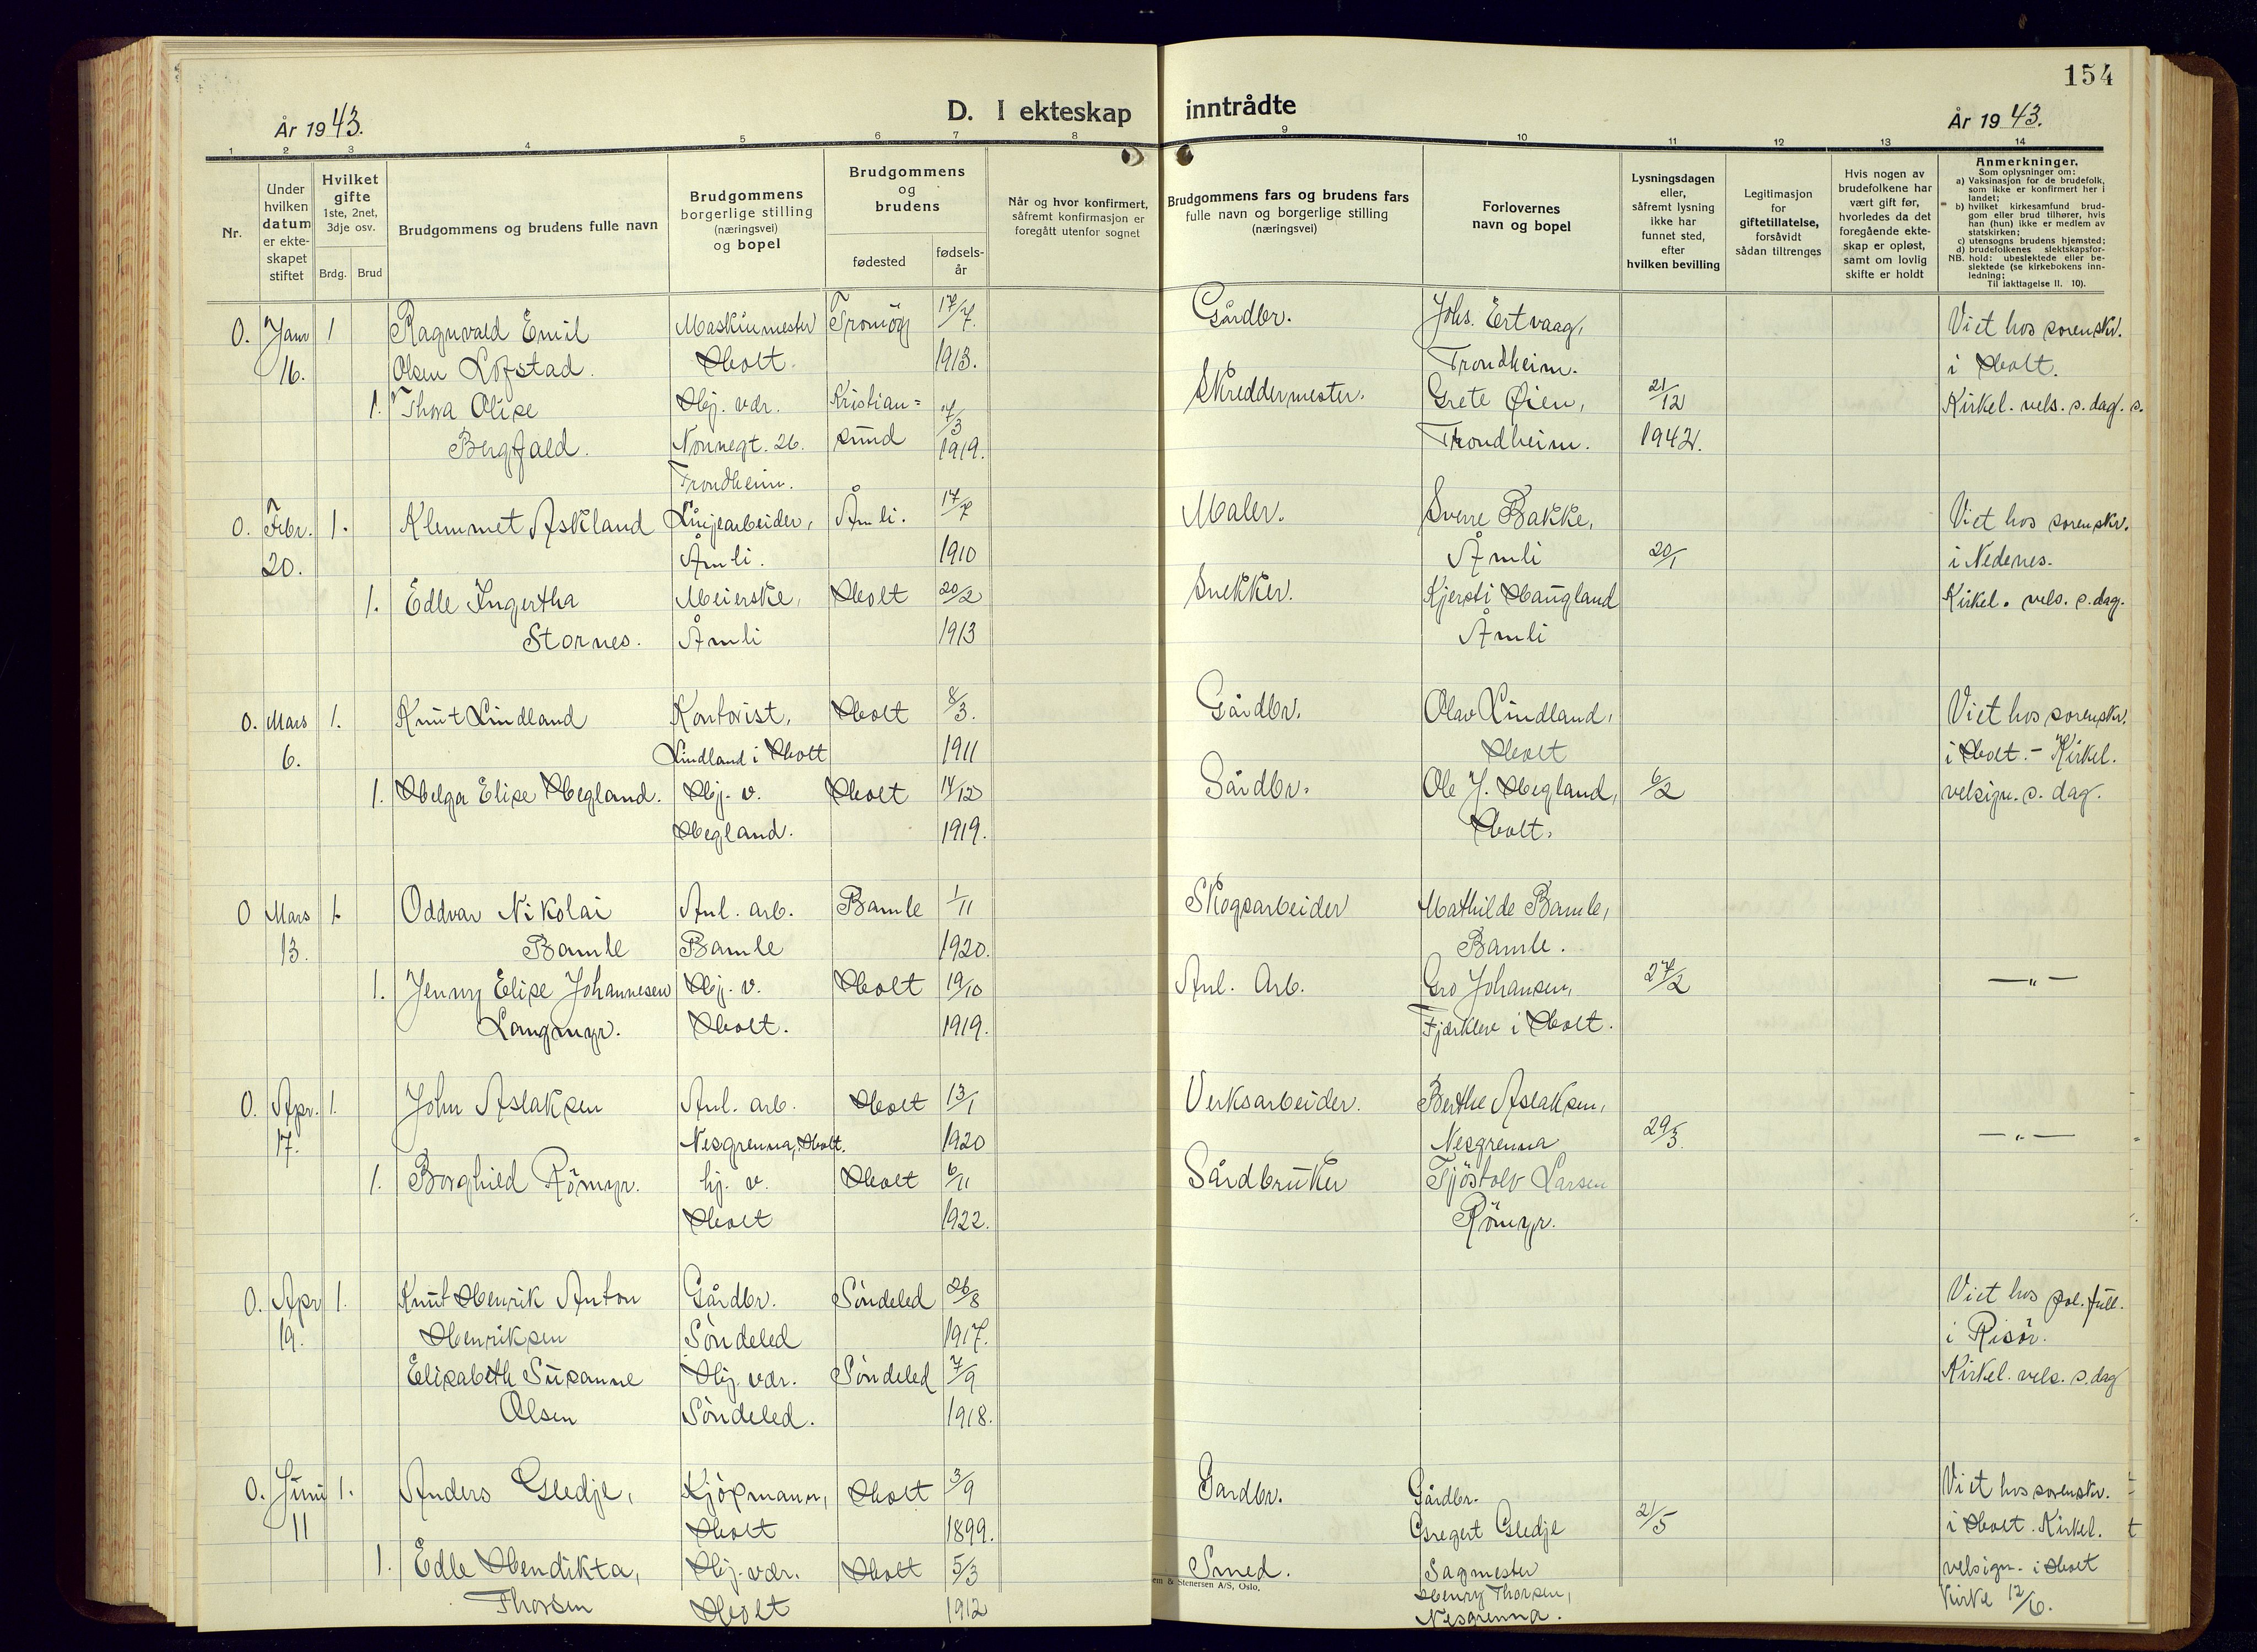 154
D. I ekteskap inntrådte
År 1943.
År 1943.
1 2 3 4 5 6 7 8 9 10 11 12 13 14
Nr.
Under hvilken datum er ekte-skapet stiftet
Hvilket gifte 1ste, 2net, 3dje osv.
Brdg. Brud
Brudgommens og brudens fulle navn
Brudgommens borgerlige stilling (næringsvei) og bopel
Brudgommens og brudens
fødested
fødsels-år
Når og hvor konfirmert, såfremt konfirmasjon er foregått utenfor sognet
Brudgommens fars og brudens fars fulle navn og borgerlige stilling (næringsvei)
Forlovernes navn og bopel
Lysningsdagen eller, såfremt lysning ikke har funnet sted, efter hvilken bevilling
Legitimasjon for giftetillatelse, forsåvidt sådan tiltrenges
Hvis nogen av brudefolkene har vært gift før, hvorledes da det foregående ekte-skap er opløst, samt om lovlig skifte er holdt
Anmerkninger.
Som oplysninger om:
a) Vaksinasjon for de brudefolk, som ikke er konfirmert her i landet;
b) hvilket kirkesamfund brud-gom eller brud tilhører, hvis han (hun) ikke er medlem av statskirken;
c) utensogns brudens hjemsted;
d) brudefolkenes slektskapsfor-hold: ubeslektede eller be-slektede (se kirkebokens inn-ledning;
NB.
Til iakttagelse II. 10).
0. Janr 1 Ragnvald Emil Maskinmester Tromöy 17/7. Gårdbr. Johs. Ertvaag, Viet hos sorenskr.
16. Olsen Löfstad. Holt. 1913. Trondheim. i Holt.
1. Thora Olise Hj. vær. Kristian= 7/3 Skreddermester. Grete Øien, 21/12 Kirkel. vels. s. dag. s.
Bergfald. Nonnegt. 26. sund 1919. Trondheim. 1942.
Trondheim.
0. Febr. 1. Klemmet Askland Linjearbeider, Åmli. 17/7 Maler. Sverre Bakke, Viet hos sorenskr.
20. Åmli. 1910 Åmli 20/1 i Nedenes.
1. Edle Ingertha Meierske, Holt 20/2 Snekker. Kjersti Haugland Kirkel. vels. s. dag.
Stornes. Åmli 1913 Åmli
0. Mars 1. Knut Lindland Kontorist, Holt 8/3. Gårdbr. Olav Lindland, Viet hos sorenskr.
6. Lindland i Holt 1911 Holt i Holt. - Kirkel.
1. Helga Elise Hegland. Hj. v. Holt 14/12 Gårdbr. Ole J. Hegland, 6/2 velsign. s. dag.
Hegland. 1919. Holt.
0 Mars 1. Oddvar Nikolai Anl. arb. Bamle 1/11 Skogsarbeider Mathilde Bamle,
13. Bamle Bamle 1920. Bamle.
1. Jenny Elise Johannesen Hj. v. Holt 19/10 Anl. Arb. Gro Johansen, 27/2 —„—
Langmyr. Holt. 1919. Fjærkleve i Holt.
0. Apr. 1. John Aslaksen Anl. arb. Holt 13/1 Verksarbeider. Berthe Aslaksen,
17. Nesgrenna, Holt. 1920 Nesgrenna 29/3. —„—
1. Borghild Römyr. hj. v. Holt 6/11 Gårdbruker Tjöstolv Larsen
Holt 1922. Römyr.
0. Apr 1. Knut Henrik Anton Gårdbr. Söndeled 26/8 Viet hos pol. full.
19. Henriksen Söndeled 1917. i Risör.
Elisabeth Susanne Hj. vær. Söndeled 7/9 Kirkel. vels. s. dag
Olsen Söndeled. 1918.
0. Juni 1. Anders Gledje, Kjöpmann, Holt 3/9 Gardbr. Gårdbr. Viet hos sorenskr.
11 Holt 1899. Gregert Gledje 2/5 i Holt. Kirkel.
1. Edle Hendikta, Hj. vær. Holt 5/3 Smed. Sagmester velsign. i Holt
Thorsen Holt 1912 Henry Thorsen, Kirke 12/6.
Nesgrenna.
& Stenersen A/S, Oslo.